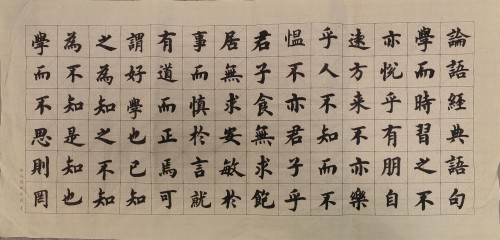 論語經典語句
學而時習之不
亦悅乎有朋自
遠方来不亦樂
乎人不知而不
愠不亦君子乎
君子食無求飽
居無求安敏於
事而慎於言就
有道而正焉可
謂好學也已知
之為知之不知
為不知是知也
學而不思則罔